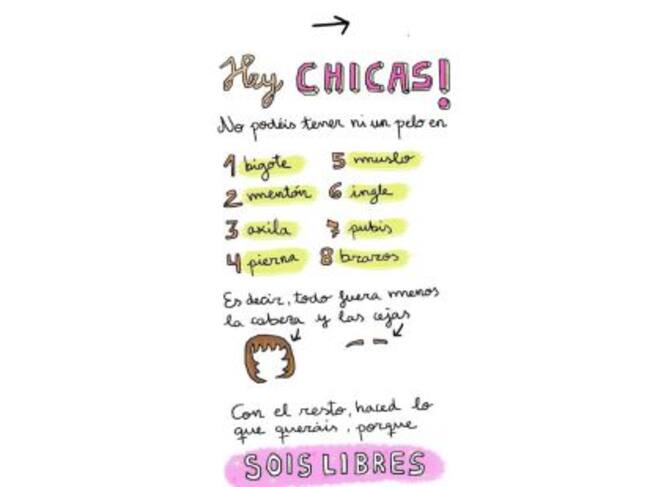 Hey CHICAS!
No podéis tener ni un pelo en
1 bigote
2 mentón
3 axila
4 pierna
5 muslo
6 ingle
7 pubis
8 brazos
Es decir, todo fuera menos
la cabeza y las cejas
Con el resto, haced lo
que queráis, porque
SOIS LIBRES